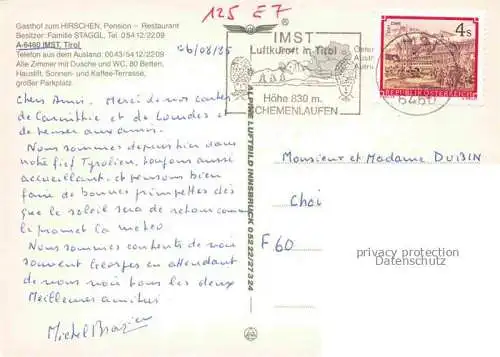 125 E7
Gasthof zum HIRSCHEN, Pension – Restaurant
Besitzer: Familie STAGGL, Tel. 05412/2209
A-6460 IMST, Tirol
Telefon aus dem Ausland: 0043/5412/2209
Alle Zimmer mit Dusche und WC, 80 Betten,
Hauslift, Sonnen- und Kaffee-Terrasse,
großer Parkplatz
6/08/85
IMST
Luftkurort in Tirol
Höhe 830 m.
SCHEMENLAUFEN
6460
4 S
REPUBLIK ÖSTERREICH
ALPINE LUFTBILD INNSBRUCK 05222/27324
Chers Amis. Merci de vos cartes
de Carinthie et de Lourdes et
de penser aux amis.
Nous sommes depuis hier dans
notre fief Tyrolien, toujours aussi
accueillant et pensons bien
faire de bonnes grimpettes dès
que le soleil sera de retour comme
le promet la météo
Nous sommes contents de voir
souvent Georges en attendant
de vous voir tous les deux
Meilleures amitiés
Michel
Monsieur et Madame DUBIN
Choi
F 60
privacy protection
Datenschutz